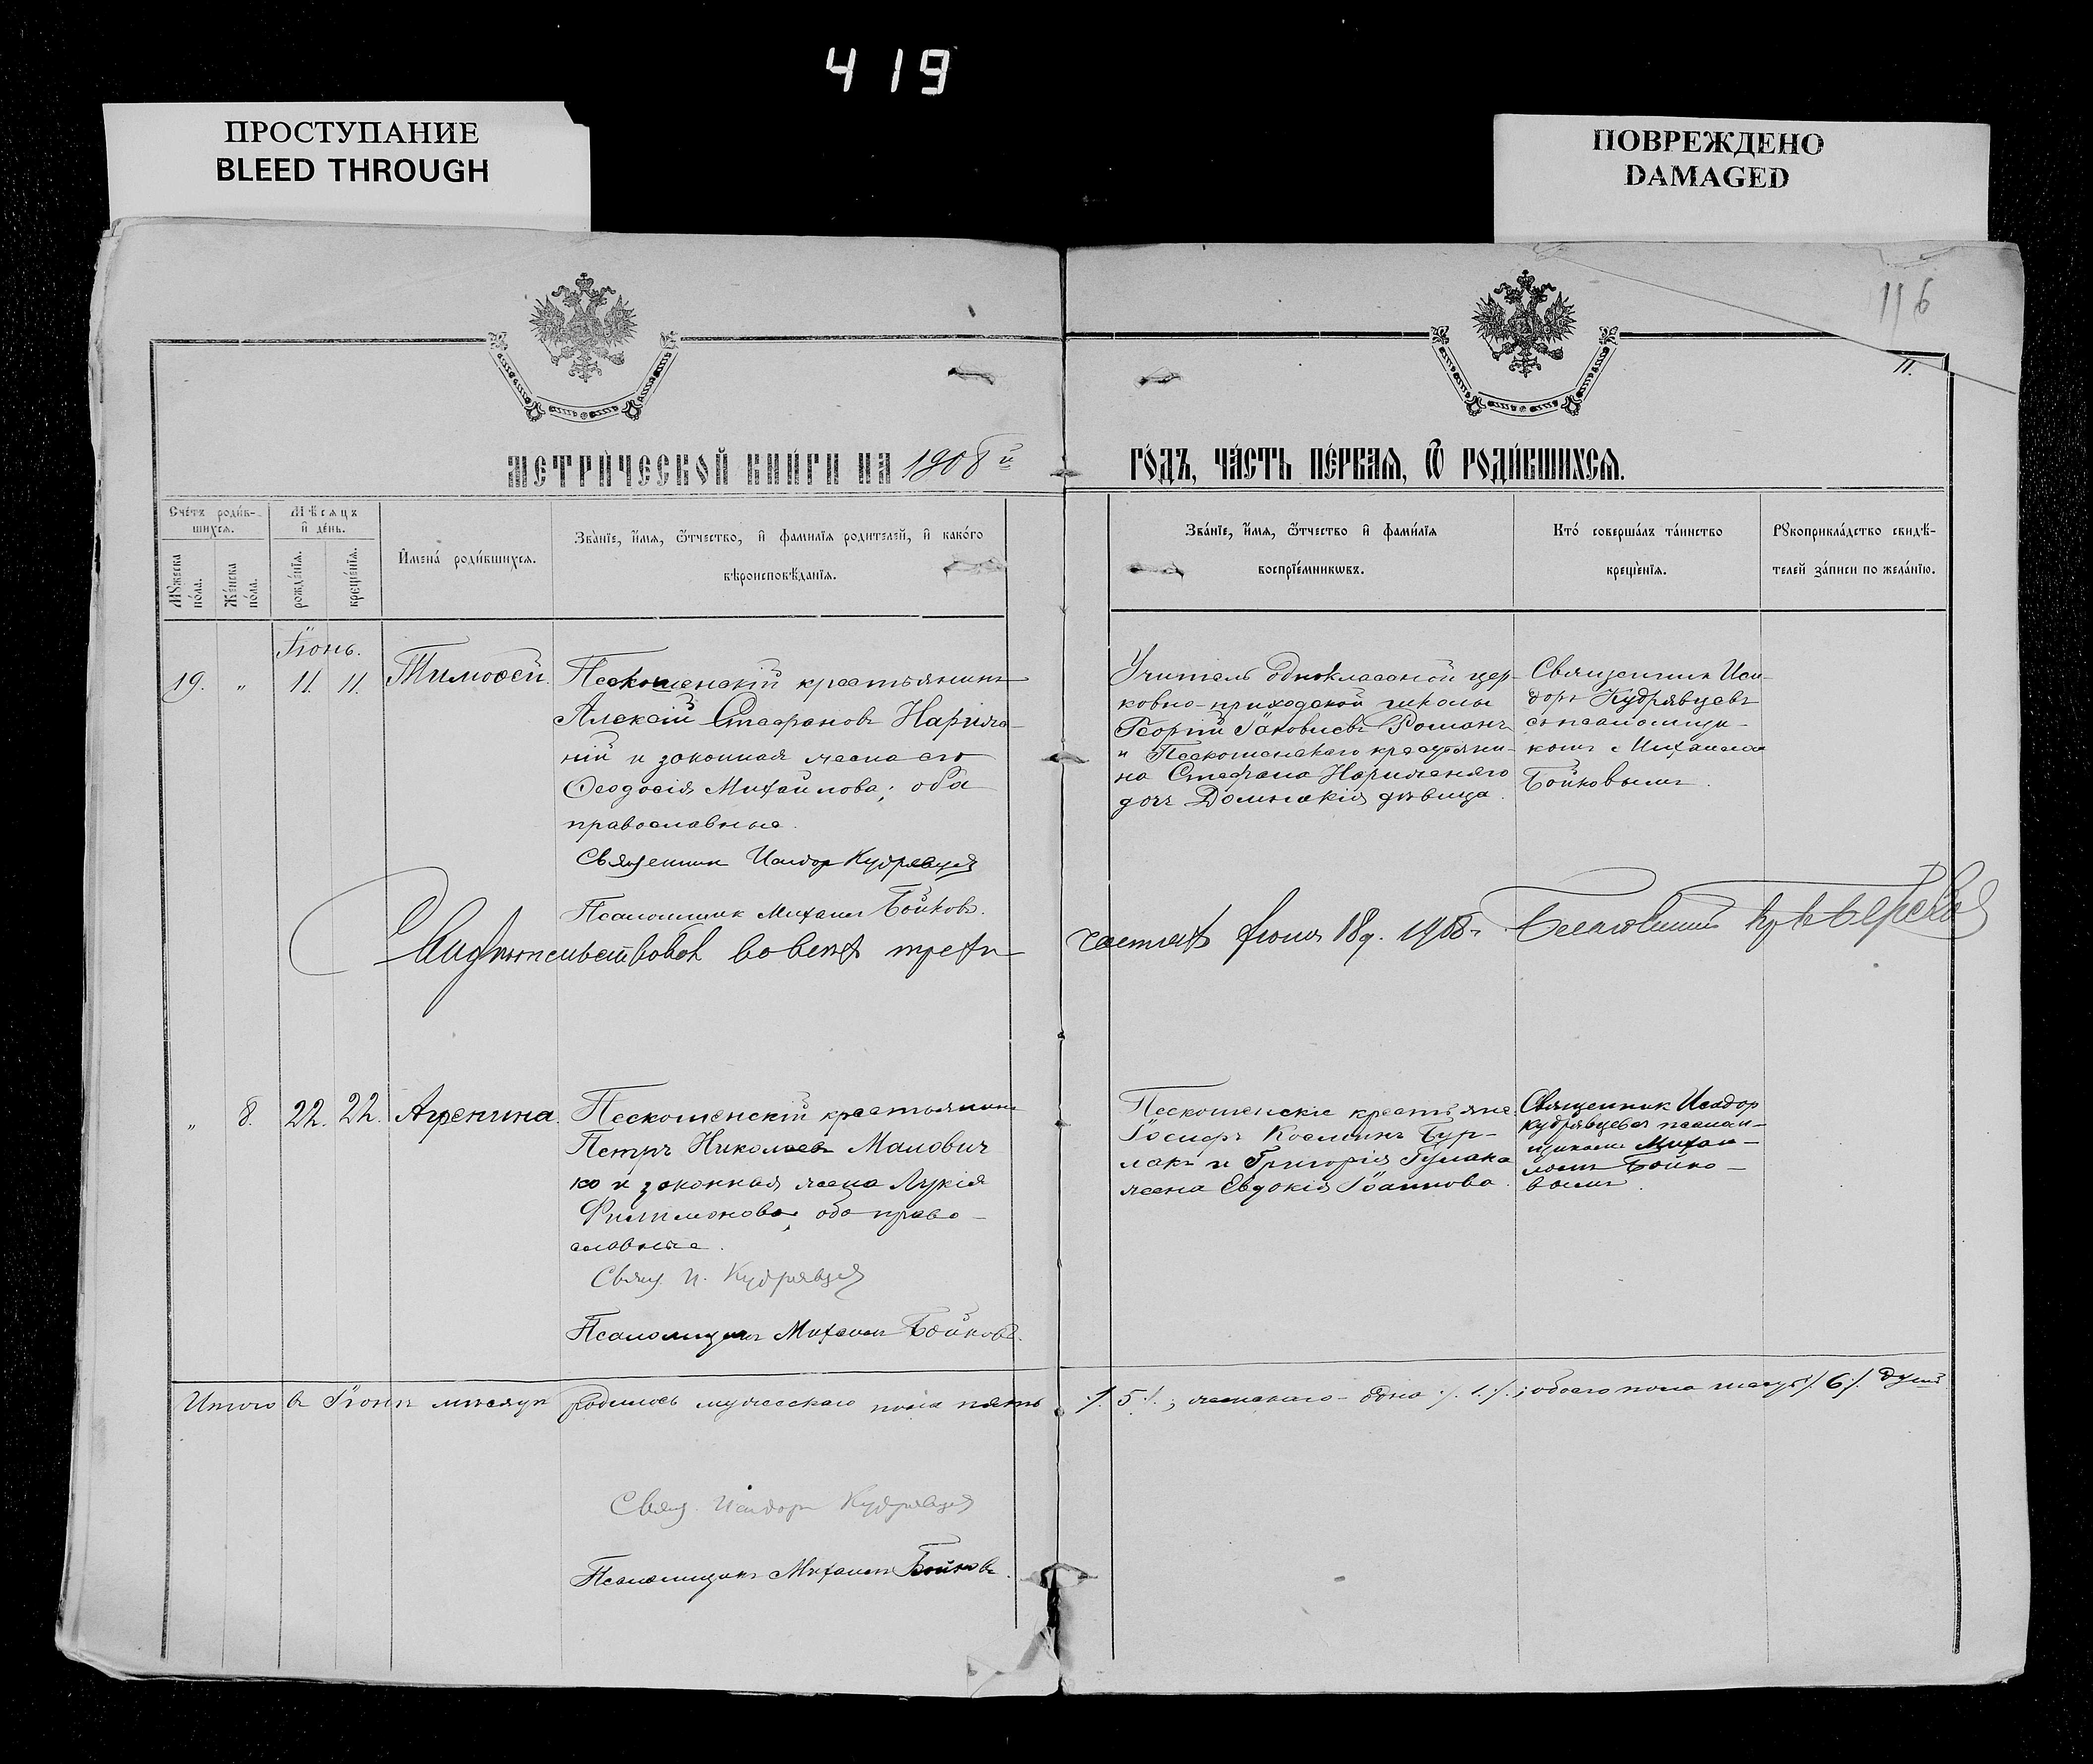 419
ПРОСТУПАНИЕ
BLEED THROUGH
ПОВРЕЖДЕНО
DAMAGED
116
11.
МЕТРИ́ЧЕСКОЙ КНИ́ГИ НА 1908 й
ГО́ДЪ, ЧА́СТЬ ПЕ́РВАЯ, Ѿ РОДИ́ВШИХСЯ.
Сче́тъ роди́в-
шихся.
Мѣсяцъ
и҆ де́нь.
Мꙋ́жеска
по́ла.
Же́нска
по́ла.
рожде́нїѧ.
креще́нїѧ.
И҆мена̀ роди́вшихсѧ.
Зва́нїе, и҆́мѧ, ѻ҆́тчество, и҆ фамѝлїѧ родителей, и҆ како́гѡ
вѣроисповѣ́данїѧ.
Зва́нїе, и҆́мѧ, ѻ҆́тчество и҆ фами́лїѧ
воспрїе́мникѡвъ.
Кто̀ соверша́лъ та́инство
креще́нїѧ.
Рꙋкоприкла́дство свидѣ́-
телей за́писи по жела́нїю.
Іюнь.
19. " 11. 11. Тимоѳей.
Пескошенскій крестьянинъ
Алексій Стефановъ Нариж
ній и законная жена его
Ѳеодосія Михаилова; оба
православные.
Священник Исидор Кудрявцев
Псаломщик Михаил Бойковъ.
Учитель одноклассной цер-
ковно-приходской школы
Георгій Іаковлевъ Романъ
и Пескошенскаго крестьяни-
на Стефана Нарижняго
дочь Домникія девица.
Священник Иси-
доръ Кудрявцевъ
съ псаломщи-
комъ Михаиломъ
Бойковымъ.
Свидетельствовал во всехъ трехъ
частяхъ Іюня 18 д. 1908 г. Благочинный
" 8. 22. 22. Агрепина.
Пескошенскій крестьянинъ
Петръ Николаевъ Малович
ко и законная жена Лукія
Филимонова, оба право-
славные.
Свящ. И. Кудрявцев
Псаломщикъ Михаил Бойковъ.
Пескошенскіе крестьяне:
Іосифъ Косминъ Бур-
лакъ и Григорія Гулака
жена Евдокія Іоаннова.
Священник Исидор
Кудрявцевъ с псалом-
щикомъ Михаи-
ломъ Бойко-
вымъ.
Итого въ Іюнѣ мѣсяцѣ родилось мужескаго пола пять ./. 5 ./., женскаго - одна ./. 1 ./.; обоего пола шесть ./. 6 ./. душъ
Свящ. Исидоръ Кудрявцев
Псаломщикъ Михаил Бойковъ.